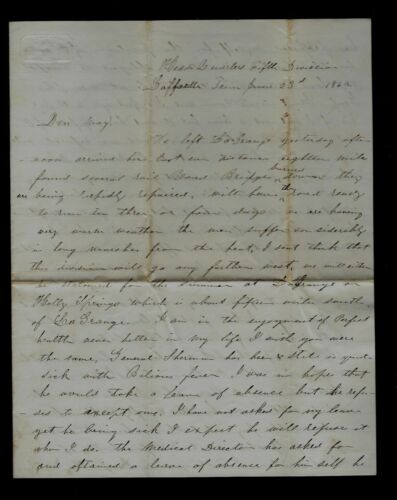 Head Quarters Fifth Division
Laffaette Tenn June 23d 1862
Dear May
We left LaGrange yesterday after
noon arrived here last eve Distance eighteen mile
found several rail Road Bridges burned down they
are being rapidly repaired, will have the road ready
to run in three or four days we are having
very warm weather the men suffer considerably
in long marches from the heat, I dont think that
this division will go any further west, we will either
be stationed for the summer at LaGrange or
Holly Springs which is about fifteen mile south
of LaGrange. I am in the enjoyment of Perfect
health never better in my life I wish you were
the same, General Sherman has been & still is quite
sick with Bilious fever I was in hopes that
he would take a leave of absence but he refu-
ses to except one. I have not asked for my leave
yet he being sick I expect he will refuse it
when I do. the Medical Director has asked for
and obtained a leave of absence for him self he